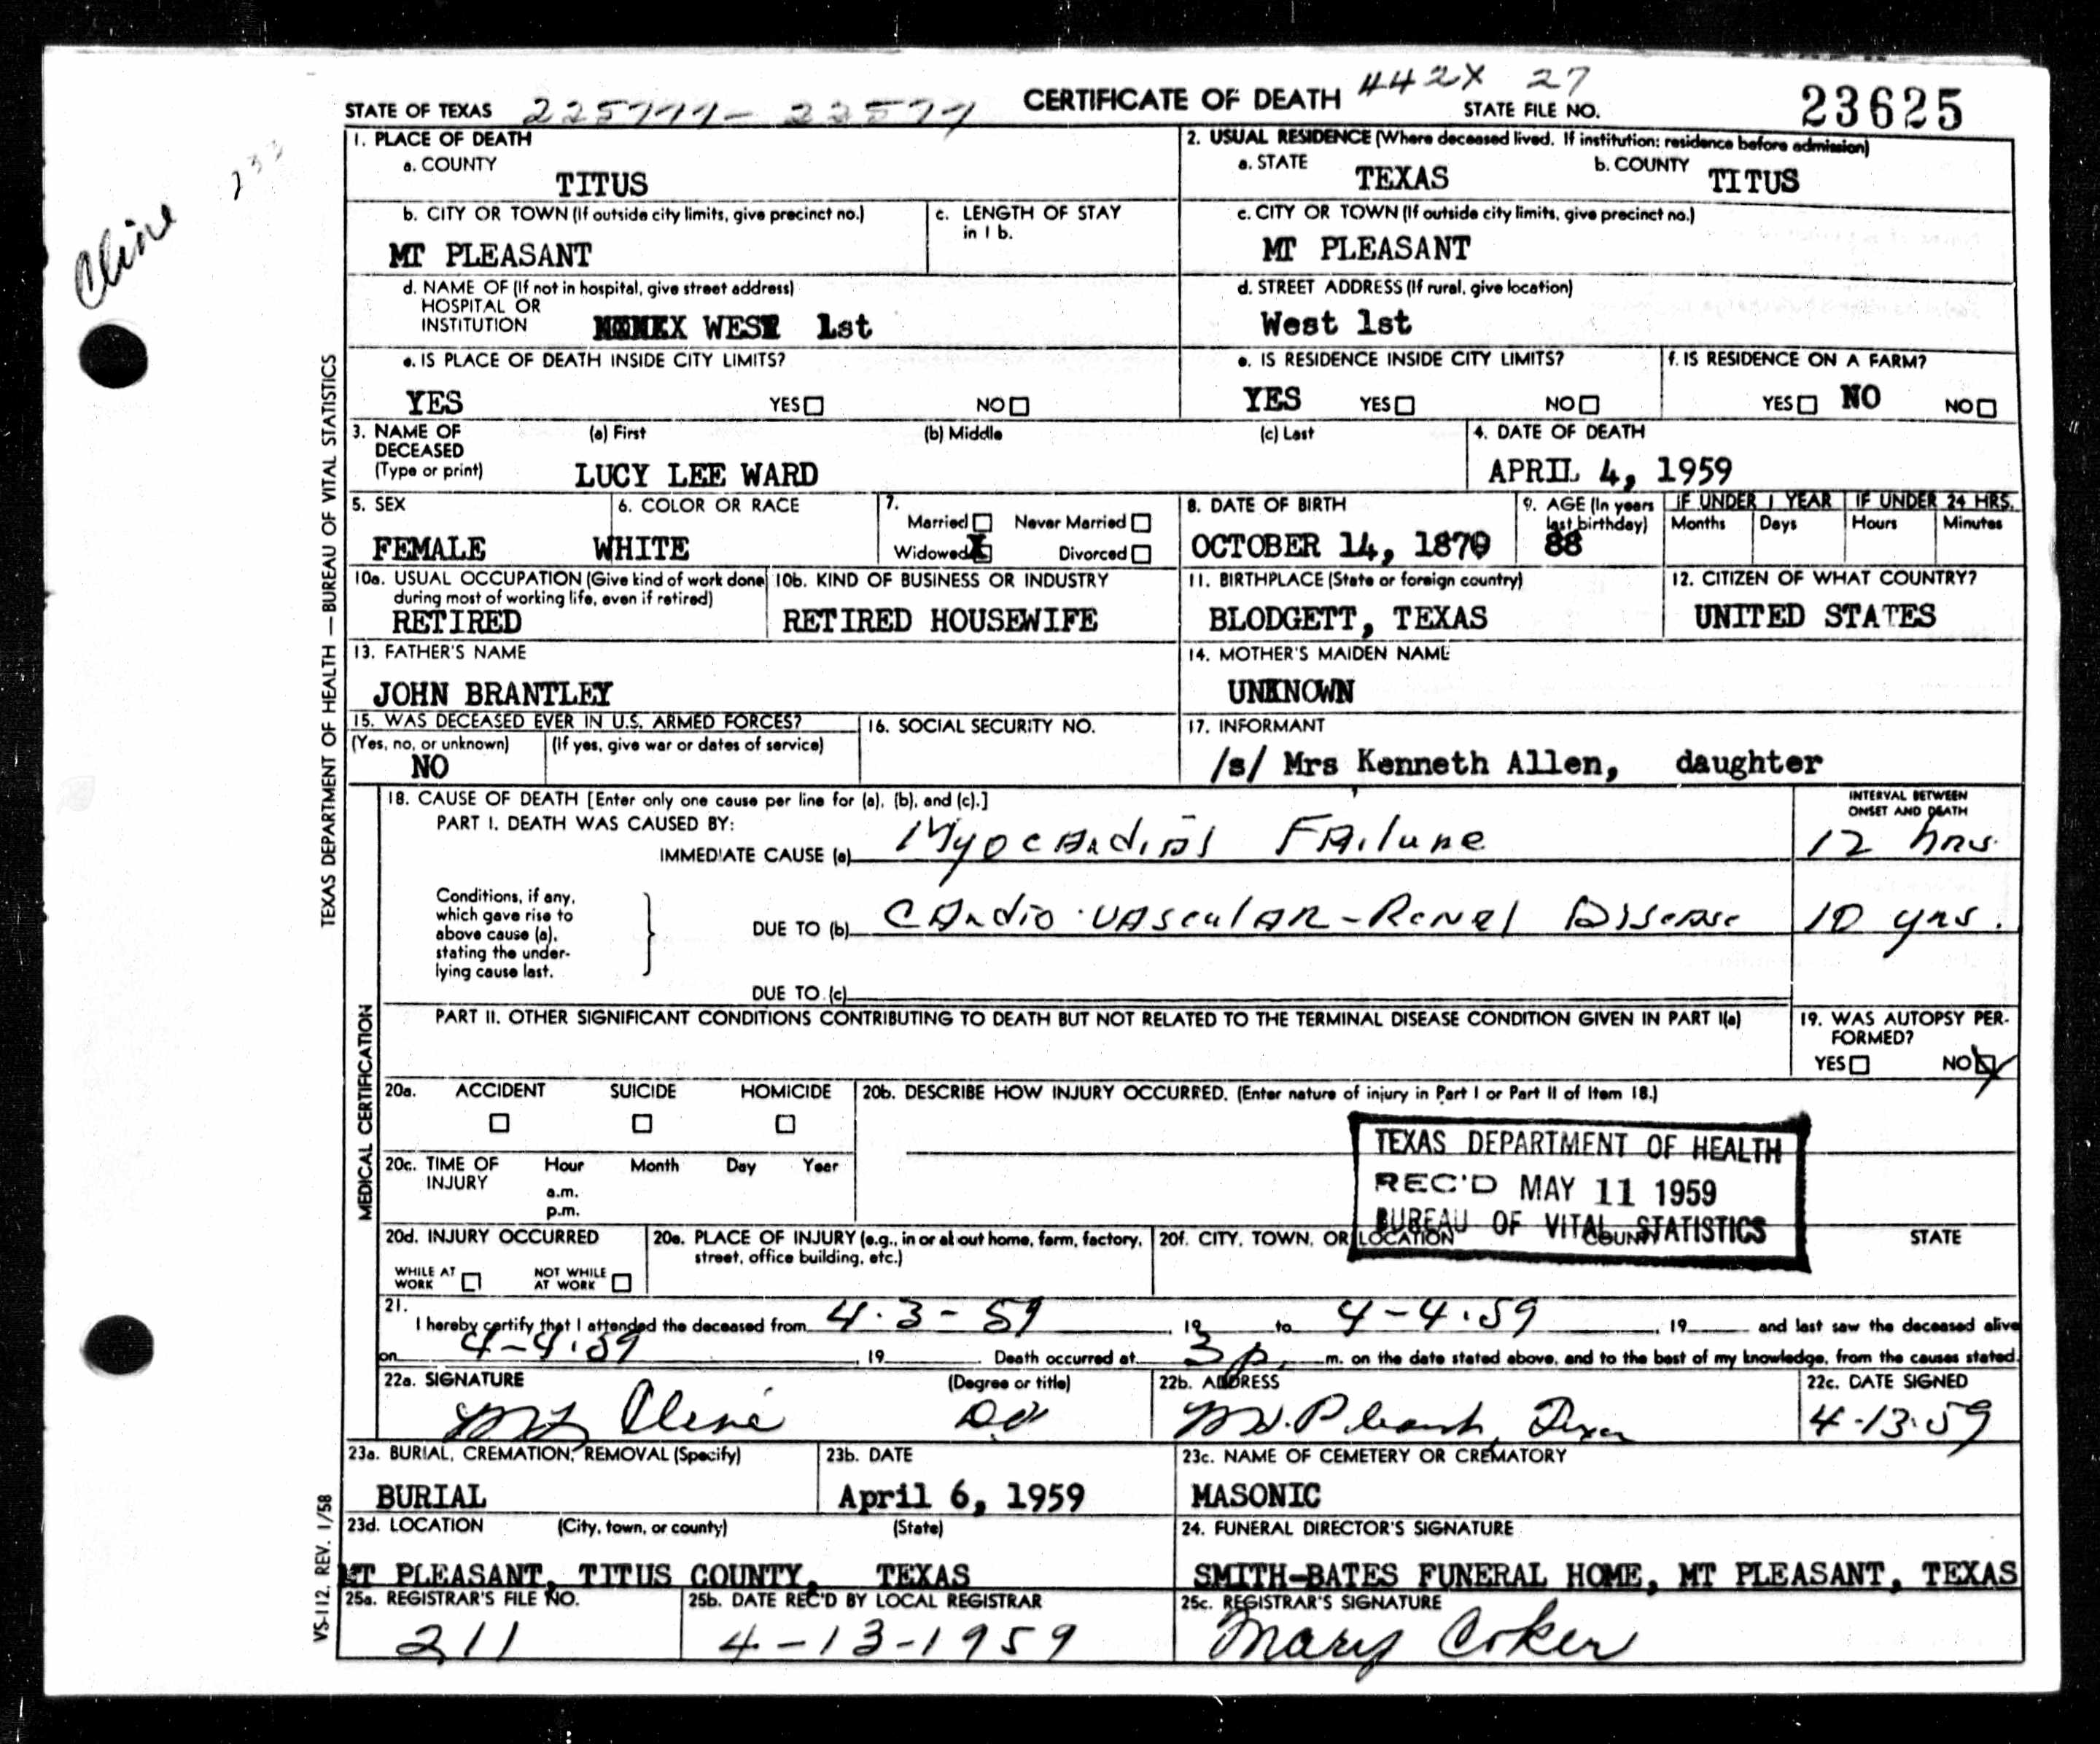 442X 27
STATE OF TEXAS
CERTIFICATE OF DEATH
STATE FILE NO. 23625
Cline
TEXAS DEPARTMENT OF HEALTH — BUREAU OF VITAL STATISTICS
1. PLACE OF DEATH
a. COUNTY
TITUS
2. USUAL RESIDENCE (Where deceased lived. If institution: residence before admission)
a. STATE
TEXAS
b. COUNTY
TITUS
b. CITY OR TOWN (If outside city limits, give precinct no.)
MT PLEASANT
c. LENGTH OF STAY
in 1 b.
c. CITY OR TOWN (If outside city limits, give precinct no.)
MT PLEASANT
d. NAME OF (If not in hospital, give street address)
HOSPITAL OR
INSTITUTION
WEST 1st
d. STREET ADDRESS (If rural, give location)
West 1st
e. IS PLACE OF DEATH INSIDE CITY LIMITS?
YES YES NO
e. IS RESIDENCE INSIDE CITY LIMITS?
YES YES NO
f. IS RESIDENCE ON A FARM?
YES NO NO
3. NAME OF
DECEASED
(Type or print)
(a) First (b) Middle (c) Last
LUCY LEE WARD
4. DATE OF DEATH
APRIL 4, 1959
5. SEX
FEMALE
6. COLOR OR RACE
WHITE
7.
Married Never Married
Widowed X Divorced
8. DATE OF BIRTH
OCTOBER 14, 1870
9. AGE (In years
last birthday)
88
IF UNDER 1 YEAR
Months Days
IF UNDER 24 HRS.
Hours Minutes
10a. USUAL OCCUPATION (Give kind of work done
during most of working life, even if retired)
RETIRED
10b. KIND OF BUSINESS OR INDUSTRY
RETIRED HOUSEWIFE
11. BIRTHPLACE (State or foreign country)
BLODGETT, TEXAS
12. CITIZEN OF WHAT COUNTRY?
UNITED STATES
13. FATHER'S NAME
JOHN BRANTLEY
14. MOTHER'S MAIDEN NAME
UNKNOWN
15. WAS DECEASED EVER IN U.S. ARMED FORCES?
(Yes, no, or unknown) (If yes, give war or dates of service)
NO
16. SOCIAL SECURITY NO.
17. INFORMANT
/s/ Mrs Kenneth Allen, daughter
MEDICAL CERTIFICATION
18. CAUSE OF DEATH [Enter only one cause per line for (a), (b), and (c).]
PART I. DEATH WAS CAUSED BY:
IMMEDIATE CAUSE (a) Myocardial Failure
INTERVAL BETWEEN
ONSET AND DEATH
12 hrs.
Conditions, if any,
which gave rise to
above cause (a),
stating the under-
lying cause last.
DUE TO (b) Cardio-vascular-Renal Disease
10 yrs.
DUE TO (c)
PART II. OTHER SIGNIFICANT CONDITIONS CONTRIBUTING TO DEATH BUT NOT RELATED TO THE TERMINAL DISEASE CONDITION GIVEN IN PART I(a)
19. WAS AUTOPSY PER-
FORMED?
YES NO
20a. ACCIDENT SUICIDE HOMICIDE
20b. DESCRIBE HOW INJURY OCCURRED. (Enter nature of injury in Part I or Part II of Item 18.)
TEXAS DEPARTMENT OF HEALTH
REC'D MAY 11 1959
BUREAU OF VITAL STATISTICS
20c. TIME OF
INJURY
Hour Month Day Year
a.m.
p.m.
20d. INJURY OCCURRED
WHILE AT
WORK
NOT WHILE
AT WORK
20e. PLACE OF INJURY (e.g., in or about home, farm, factory,
street, office building, etc.)
20f. CITY, TOWN, OR LOCATION COUNTY STATE
21.
I hereby certify that I attended the deceased from 4-3-59, 19 to 4-4-59, 19 and last saw the deceased alive
on 4-4-59, 19 . Death occurred at 3 p. m. on the date stated above, and to the best of my knowledge, from the causes stated.
22a. SIGNATURE (Degree or title)
Cline DO
22b. ADDRESS
Mt. Pleasant, Texas
22c. DATE SIGNED
4-13-59
23a. BURIAL, CREMATION, REMOVAL (Specify)
BURIAL
23b. DATE
April 6, 1959
23c. NAME OF CEMETERY OR CREMATORY
MASONIC
23d. LOCATION (City, town, or county) (State)
MT PLEASANT, TITUS COUNTY, TEXAS
24. FUNERAL DIRECTOR'S SIGNATURE
SMITH-BATES FUNERAL HOME, MT PLEASANT, TEXAS
25a. REGISTRAR'S FILE NO.
211
25b. DATE REC'D BY LOCAL REGISTRAR
4-13-1959
25c. REGISTRAR'S SIGNATURE
Mary Coker
VS-112. REV. 1/58